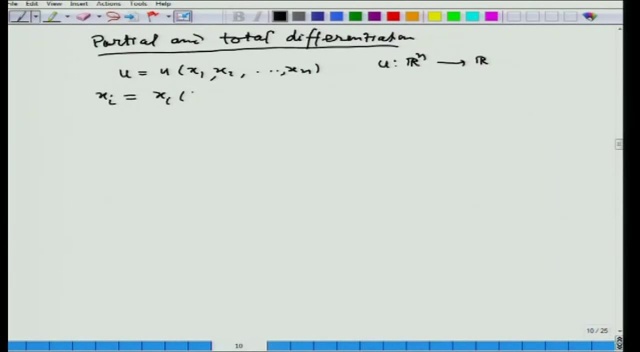 File Edit View Insert Actions Tools Help
Partial and total differentiation
u = u (x₁, x₂, ..., xₙ) u: ℝⁿ → ℝ
xᵢ = xᵢ (
10 / 25
10